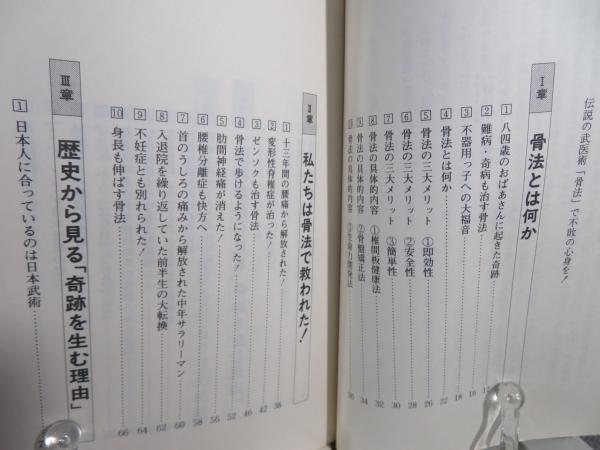 伝説の武医術「骨法」で不敗の心身を！
Ⅰ章 骨法とは何か
1 八四歳のおばあさんに起きた奇跡 12
2 難病・奇病も治す骨法 16
3 不器用っ子への大福音 18
4 骨法とは何か 22
5 骨法の三大メリット ①即効性 26
6 骨法の三大メリット ②安全性 28
7 骨法の三大メリット ③簡単性 30
8 骨法の具体的内容 ①椎間板健康法 32
9 骨法の具体的内容 ②骨盤矯正法 34
10 骨法の具体的内容 ③生命力開発法 36
Ⅱ章 私たちは骨法で救われた！
1 十三年間の腰痛から解放された！ 38
2 変形性脊椎症が治った！ 42
3 ゼンソクも治す骨法 46
4 骨法で歩けるようになった！ 52
5 肋間神経痛が消えた！ 56
6 腰椎分離症も快方へ 58
7 首のうしろの痛みから解放された中年サラリーマン 60
8 入退院を繰り返していた前半生の大転換 62
9 不妊症とも別れられた！ 64
10 身長も伸ばす骨法 66
Ⅲ章 歴史から見る「奇跡を生む理由」
1 日本人に合っているのは日本武術